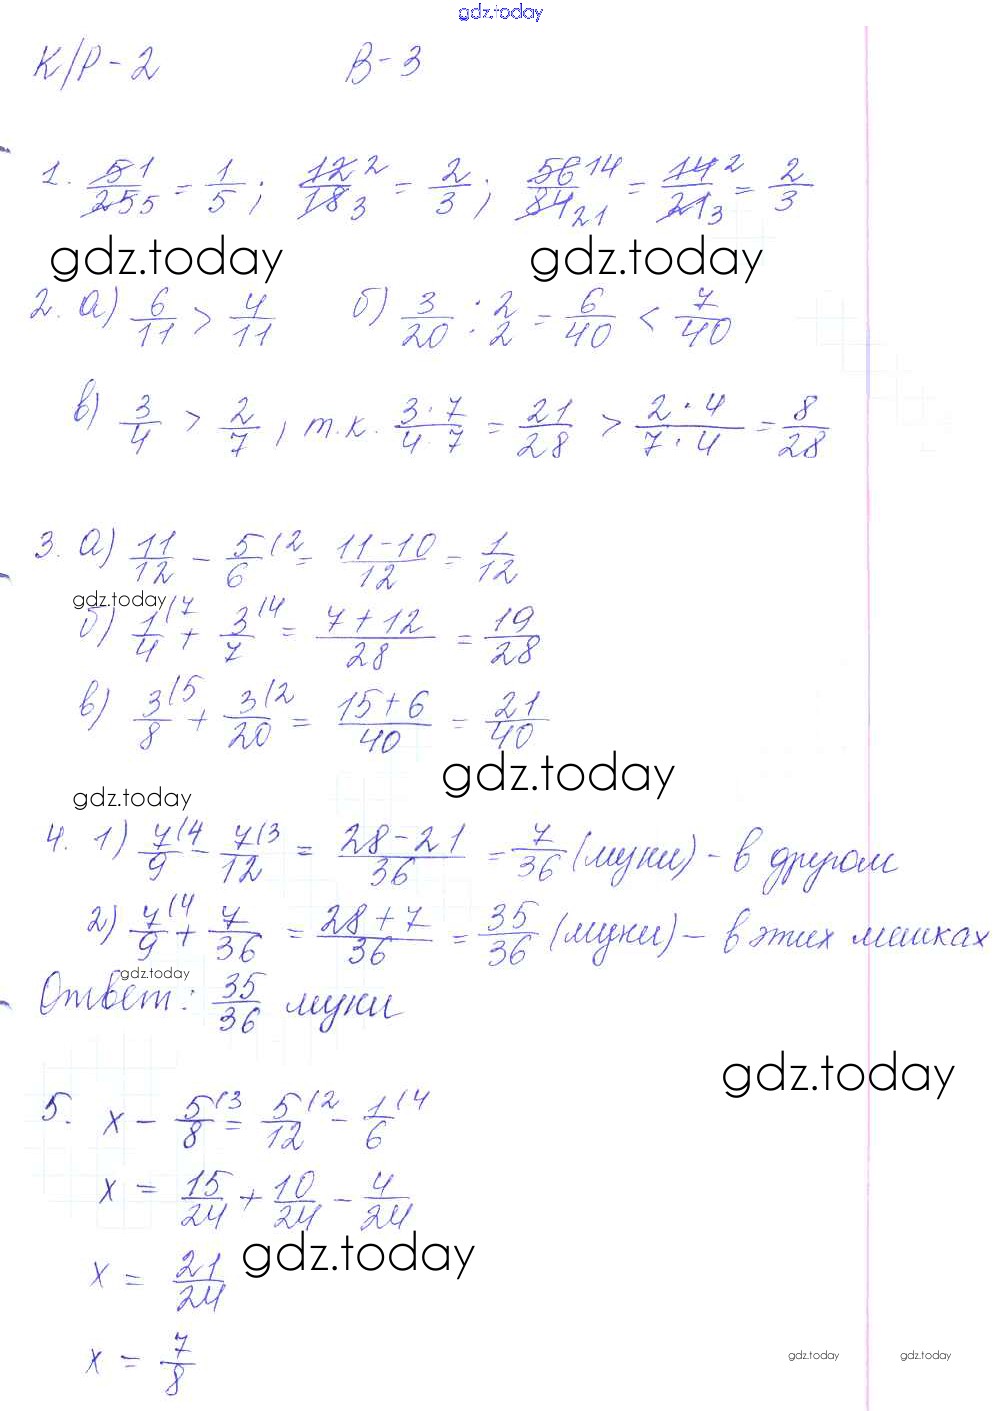 gdz.today
К/Р - 2 В - 3
1. 5 1/25 5 = 1/5; 12 2/18 3 = 2/3; 56 14/84 21 = 14 2/21 3 = 2/3
gdz.today gdz.today
2. а) 6/11 > 4/11 б) 3/20 : 2/2 = 6/40 < 7/40
в) 3/4 > 2/7, т.к. 3·7/4·7 = 21/28 > 2·4/7·4 = 8/28
3. а) 11/12 - 5/6 (2 = 11-10/12 = 1/12
gdz.today
б) 1/4 (7 + 3/7 (4 = 7+12/28 = 19/28
в) 3/8 (5 + 3/20 (2 = 15+6/40 = 21/40
gdz.today
gdz.today
4. 1) 7/9 (4 - 7/12 (3 = 28-21/36 = 7/36 (муки) - в другом
2) 7/9 (4 + 7/36 = 28+7/36 = 35/36 (муки) - в этих мешках
gdz.today
Ответ: 35/36 муки
gdz.today
5. x - 5/8 (3 = 5/12 (2 - 1/6 (4
x = 15/24 + 10/24 - 4/24
gdz.today
x = 21/24
x = 7/8
gdz.today gdz.today